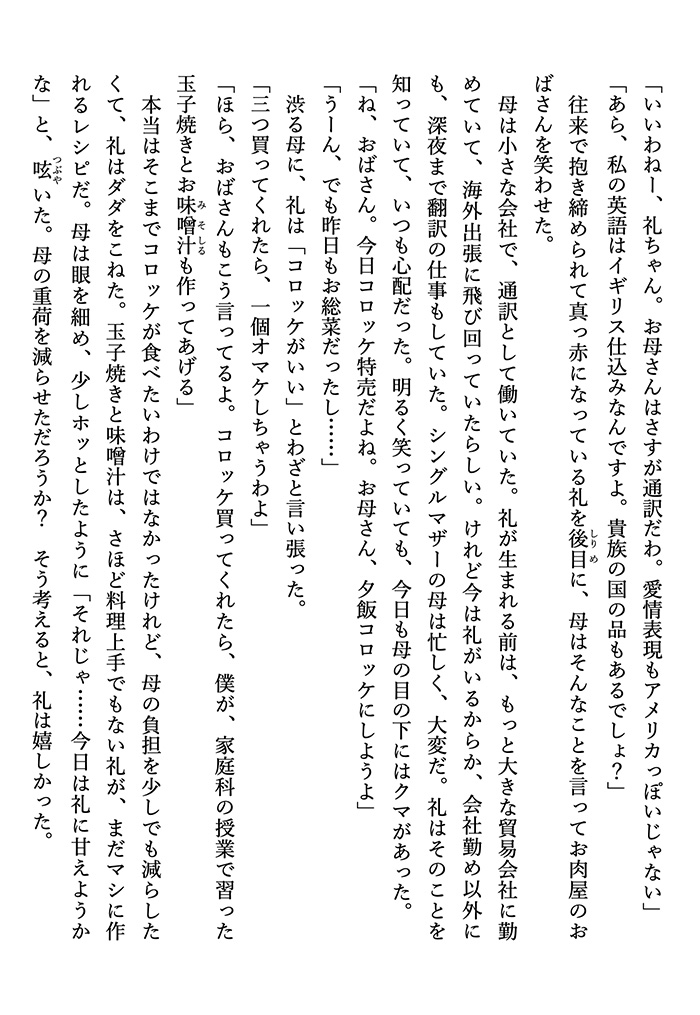 「いいわねー、礼ちゃん。お母さんはさすが通訳だわ。愛情表現もアメリカっぽいじゃない」
「あら、私の英語はイギリス仕込みなんですよ。貴族の国の品もあるでしょ？」
　往来で抱き締められて真っ赤になっている礼を後目に、母はそんなことを言ってお肉屋のお
ばさんを笑わせた。
　母は小さな会社で、通訳として働いていた。礼が生まれる前は、もっと大きな貿易会社に勤
めていて、海外出張に飛び回っていたらしい。けれど今は礼がいるからか、会社勤め以外に
も、深夜まで翻訳の仕事もしていた。シングルマザーの母は忙しく、大変だ。礼はそのことを
知っていて、いつも心配だった。明るく笑っていても、今日も母の目の下にはクマがあった。
「ね、おばさん。今日コロッケ特売だよね。お母さん、夕飯コロッケにしようよ」
「うーん、でも昨日もお総菜だったし……」
　渋る母に、礼は「コロッケがいい」とわざと言い張った。
「三つ買ってくれたら、一個オマケしちゃうわよ」
「ほら、おばさんもこう言ってるよ。コロッケ買ってくれたら、僕が、家庭科の授業で習った
玉子焼きとお味噌汁も作ってあげる」
　本当はそこまでコロッケが食べたいわけではなかったけれど、母の負担を少しでも減らした
くて、礼はダダをこねた。玉子焼きと味噌汁は、さほど料理上手でもない礼が、まだマシに作
れるレシピだ。母は眼を細め、少しホッとしたように「それじゃ……今日は礼に甘えようか
な」と、呟いた。母の重荷を減らせただろうか？　そう考えると、礼は嬉しかった。